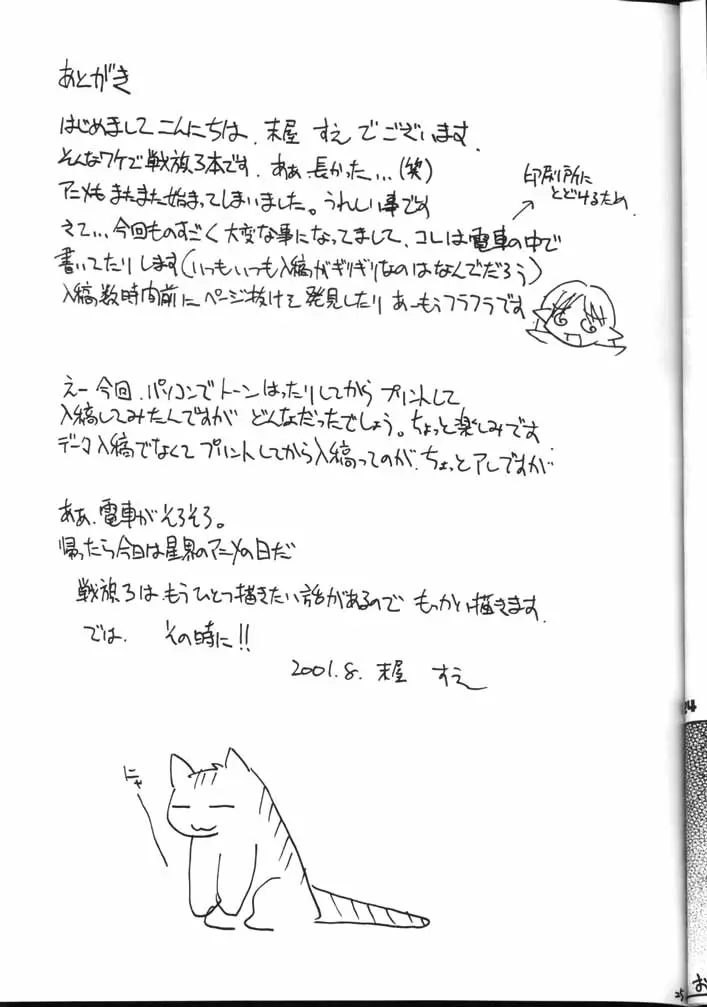 あとがき
はじめまして こんにちは、末屋 すえ でございます.
そんなワケで 戦旗3本です. あぁ 長かった…(笑)
アニメも またまた始まってしまいました。うれしい事です
さて…今回ものすごく 大変な事になってまして、コレは電車の中で
書いてたりします(いつもいつも入稿がギリギリなのはなんでだろう)
入稿数時間前に ページ抜けを発見したり あーもうフラフラです
印刷所に
とどけるため.
えー 今回、パソコンで トーン はったりしてから プリントして
入稿してみたんですが どんなだったでしょう。ちょっと楽しみです
データ入稿でなくて プリントしてから入稿ってのが、ちょっとアレですが
ああ、電車が そろそろ。
帰ったら今日は星界のアニメの日だ
戦旗3は もうひとつ描きたい話があるので もっかい描きます.
では、 その時に!!
2001.8. 末屋 すえ
にゃ
24
25